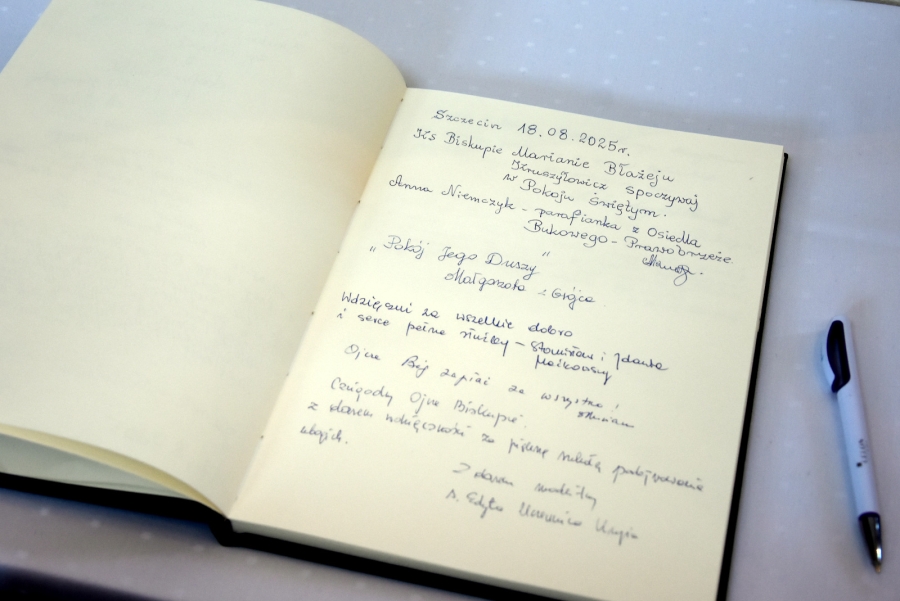 Szczecin 18.08.2025r.
Ks Biskupie Marianie Błażeju
Kruszyłowicz spoczywaj
w Pokoju świętym.
Anna Niemczyk - parafianka z Osiedla
Bukowego - Prawobrzeże.
„Pokój Jego Duszy"
Małgorzata z Grójca
Wdzięczni za wszelkie dobro
i serce pełne służby - Stanisław i Danuta
Ojcze Bóg zapłać za wszystko!
Czcigodny Ojcze Biskupie.
z darem wdzięczności za piękną szkołę podejmowania
ubogich.
Z darem modlitwy
s. Edyta Weronika